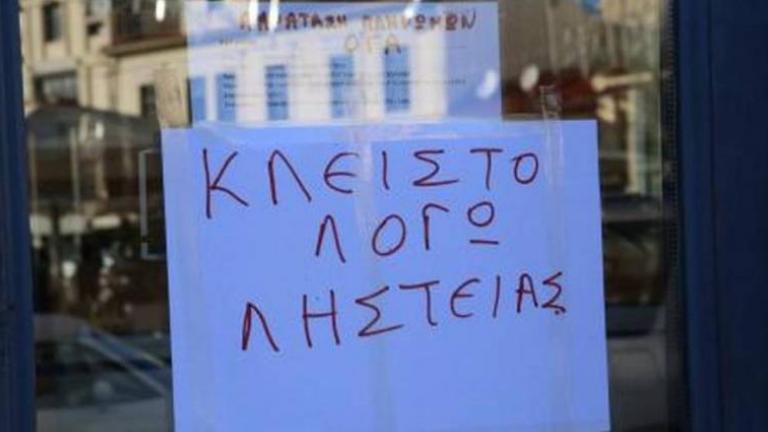 ΠΑΡΑΤΑΣΗ ΠΛΗΡΩΜΩΝ
ΟΓΑ
ΚΛΕΙΣΤΟ
ΛΟΓΩ
ΛΗΣΤΕΙΑΣ